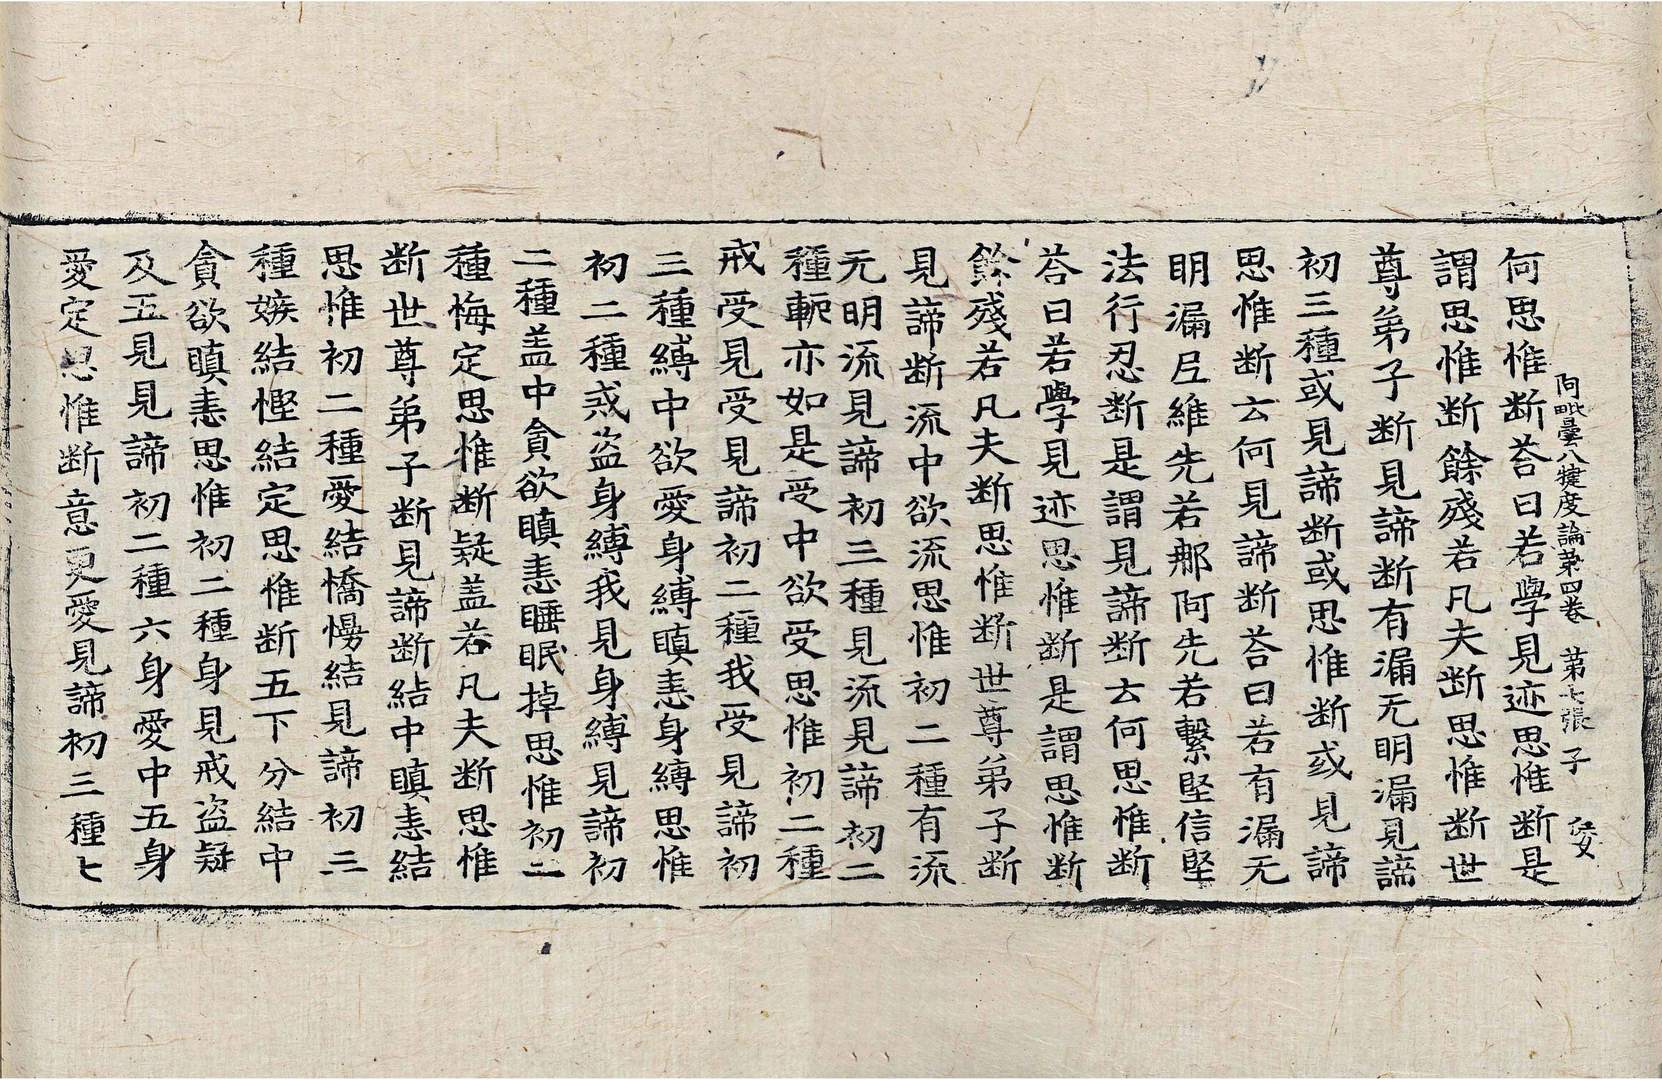 阿毗曇八犍度論第四卷 第七張 子
何思惟断荅曰若學見迹思惟断是
謂思惟断餘殘若凡夫断思惟断世
尊弟子断見諦断有漏无明漏見諦
初三種或見諦断或思惟断或見諦
思惟断云何見諦断荅曰若有漏无
明漏𡰱維先若那阿先若繫堅信堅
法行忍断是謂見諦断云何思惟断
荅曰若學見迹思惟断是謂思惟断
餘殘若凡夫断思惟断世尊弟子断
見諦断流中欲流思惟初二種有流
无明流見諦初三種見流見諦初二
種軛亦如是受中欲受思惟初二種
戒受見受見諦初二種我受見諦初
三種縛中欲愛身縛瞋恚身縛思惟
初二種戒盗身縛我見身縛見諦初
二種盖中貪欲瞋恚睡眠掉思惟初二
種悔定思惟断疑盖若凡夫断思惟
断世尊弟子断見諦断結中瞋恚結
思惟初二種愛結憍慢結見諦初三
種嫉結慳結定思惟断五下分結中
貪欲瞋恚思惟初二種身見戒盗疑
及五見見諦初二種六身愛中五身
愛定思惟断意更愛見諦初三種七